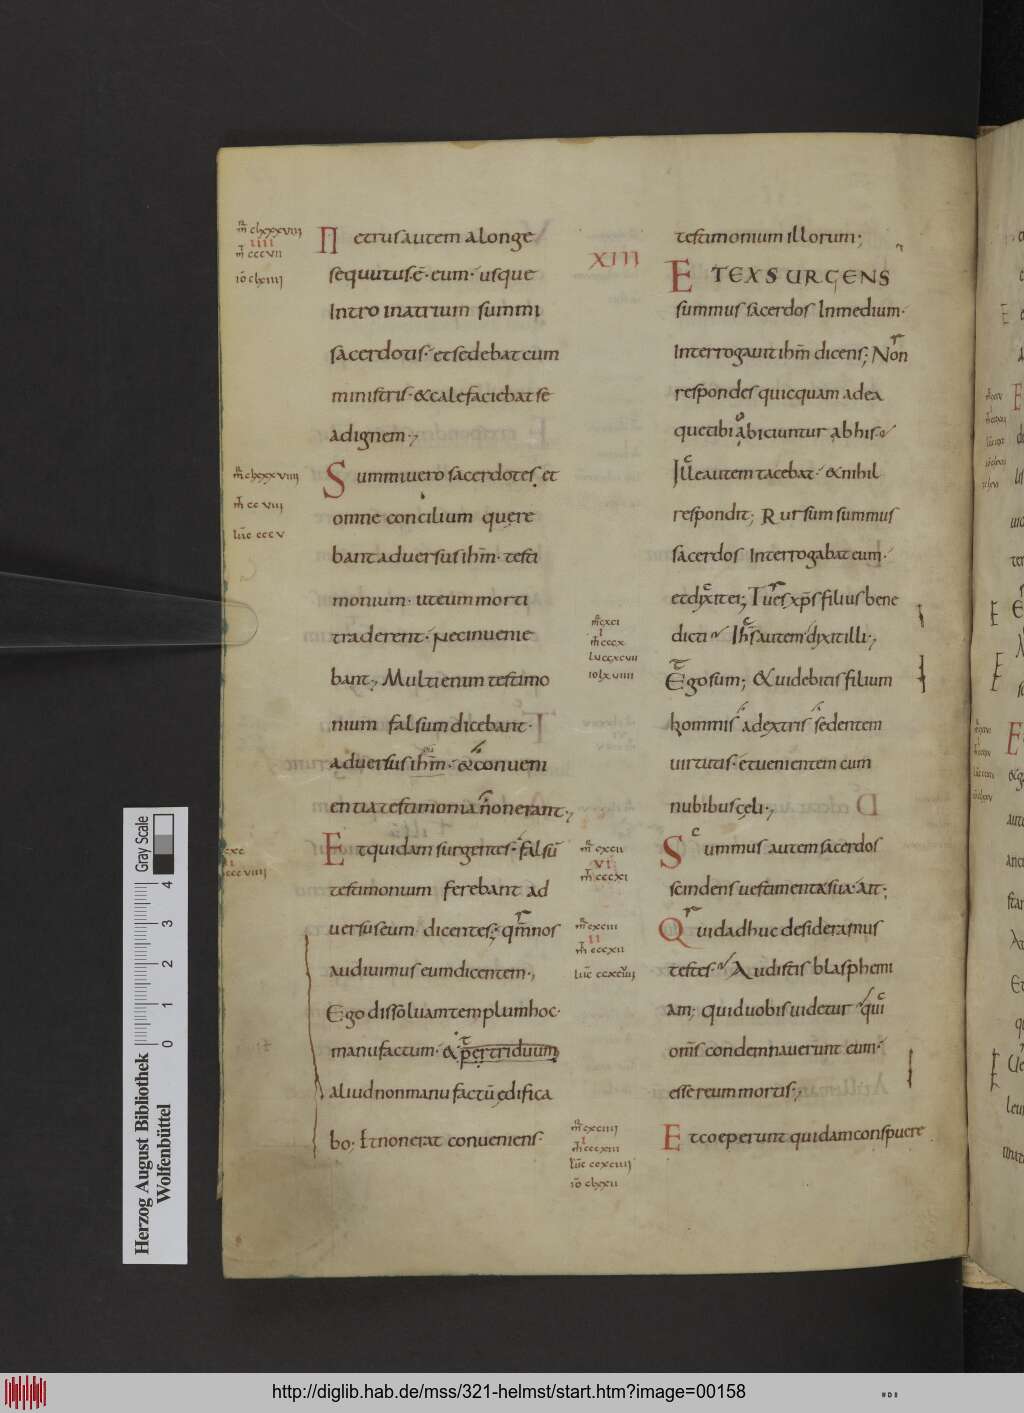 m̄ clxxxviiii
iiii
m̄ cccvii
iō clxiiii
Petrus autem a longe
sequutus ē· eum· usque
Intro in atrium summi
sacerdotis· et sedebat cum
ministris· & calefaciebat se
ad ignem·,
m̄ clxxxviiii
m̄ cc viii
luc̄ cccv
Summi vero sacerdotes et
omne concilium quere
bant adversus ihm̄· testi
monium· ut eum morti
traderent· Nec invenie
bant·, Multi enim testimo
nium falsum dicebant·
adversus ihm̄· & conveni
entia testimonia non erant·,
cxc
i
cccviiii
Et quidam surgentes· falsū
testimonium ferebant ad
versus eum dicentes; qm̄ nos
audivimus eum dicentem·,
Ego dissolvam templum hoc·
manu factum· & per triduum
aliud non manu factū edifica
bo; Et non erat conveniens·
testimonium illorum;
XIII
ET EXSURGENS
summus sacerdos In medium·
Interrogavit ihm̄ dicens; Non
respondes quicquam ad ea
que tibi abiciuntur ab his·
Ille autem tacebat· & nihil
respondit; Rursum summus
sacerdos Interrogabat eum·
et dixit ei; Tu es xp̄s filius bene
m̄ cxci
i
m̄ cccx
lu ccxcvii
io lxviiii
dicti Ih̄s autem dixit illi·,
Ego sum; & videbitis filium
hominis a dextris sedentem
virtutis· et venientem cum
nubibus celi·,
m̄ cxcii
VI
m̄ cccxi
Summus autem sacerdos
scindens vestimenta sua· ait;
m̄ cxciii
II
m̄ cccxii
luc̄ ccxcviii
Quid adhuc desideramus
testes· Audistis blasphemi
am; quid vobis videtur qui
om̄s condemnaverunt eum·
esse reum mortis·,
m̄ cxciiii
i
m̄ cccxiii
luc̄ ccxciiii
iō clxxii
Et coeperunt quidam conspuere
Herzog August Bibliothek
Wolfenbüttel
0 1 2 3 4
Gray Scale
http://diglib.hab.de/mss/321-helmst/start.htm?image=00158